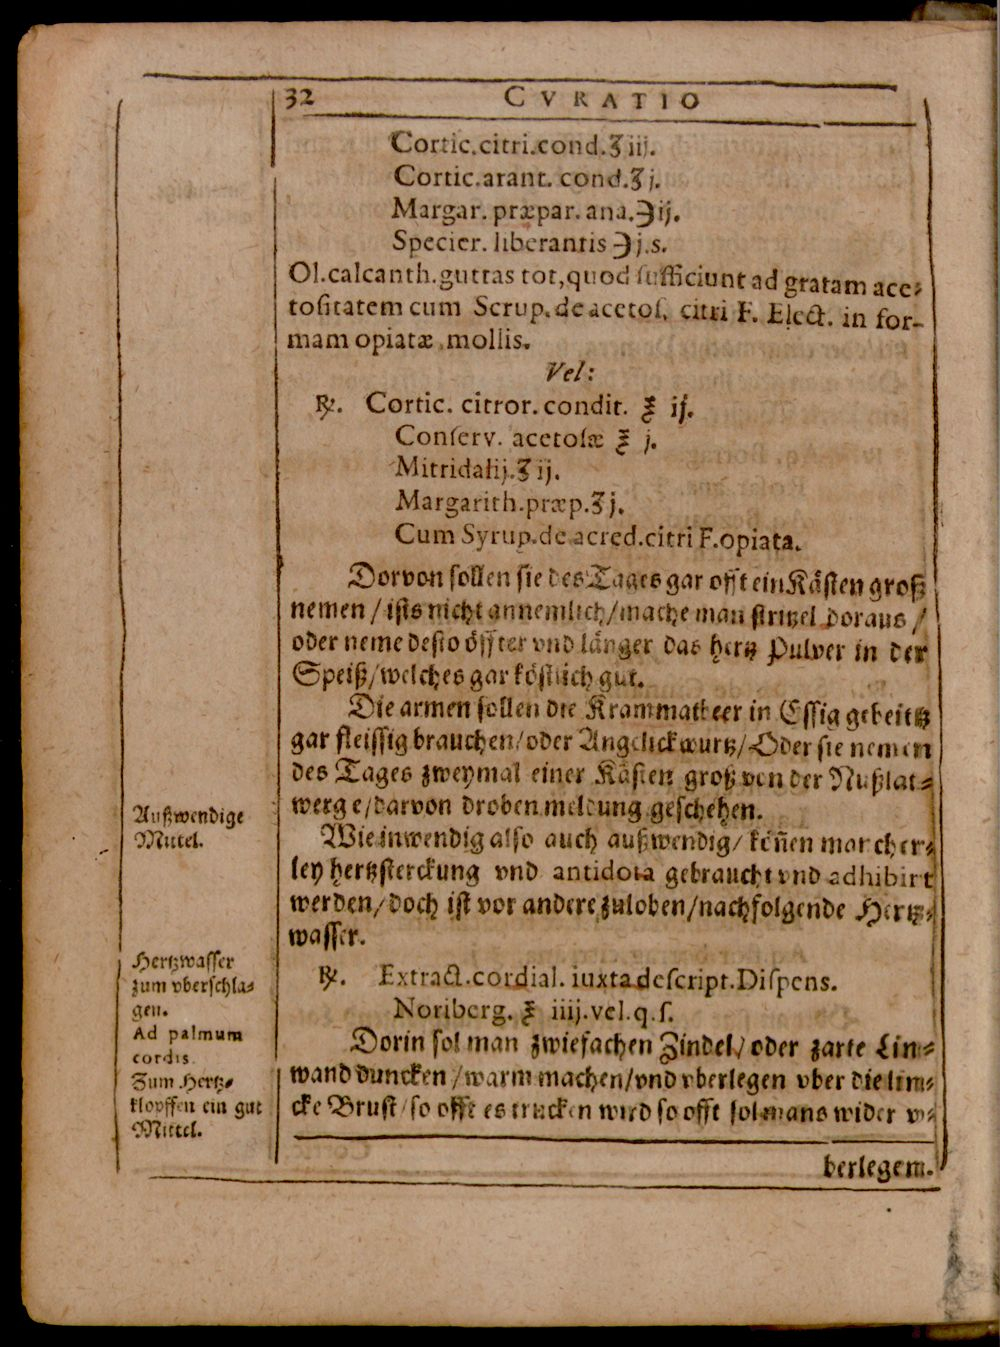 32 CVRATIO
Cortic.citri.cond.ʒ iij.
Cortic.arant. cond.ʒ j.
Margar. præpar. ana.℈ij.
Specier. liberantis ℈j.s.
Ol.calcanth.guttas tot,quod sufficiunt ad gratam ace-
tositatem cum Scrup.de acetos. citri F. Elect. in for-
mam opiatæ mollis.
Vel:
℞. Cortic. citror. condit. ℥ iſ.
Conserv. acetosæ ℥ j.
Mitridatij.ʒ ij.
Margarith.præp.ʒ j.
Cum Syrup.de acred.citri F.opiata.
Dorvon sollen sie des Tages gar offt ein Kästen groß
nemen / ists nicht annemlich/mache man stritzel doraus /
oder neme desto öffter vnd länger das hertz Pulver in der
Speiß/welches gar köstlich gut.
Die armen sollen die Krammatbeer in Essig gebeitz
gar fleissig brauchen/oder Angelickwurtz/Oder sie nemen
des Tages zweymal einer Kästen groß von der Nußlat-
werge/darvon droben meldung geschehen.
Außwendige
Mittel.
Wie inwendig also auch außwendig/ köñen mancher-
ley hertzsterckung vnd antidota gebraucht vnd adhibirt
werden/doch ist vor andere zuloben/nachfolgende Hertz-
wasser.
Hertzwasser
zum vberschla-
gen.
Ad palmum
cordis.
Zum Hertz-
klopffen ein gut
Mittel.
℞. Extract.cordial. iuxta descript.Dispens.
Noriberg. ℥ iiij.vel.q.s.
Dorin sol man zwiefachen Zindel/ oder zarte Lin-
wand duncken /warm machen/vnd vberlegen vber die lin-
cke Brust/so offt es trucken wird so offt sol mans wider v-
berlegem.